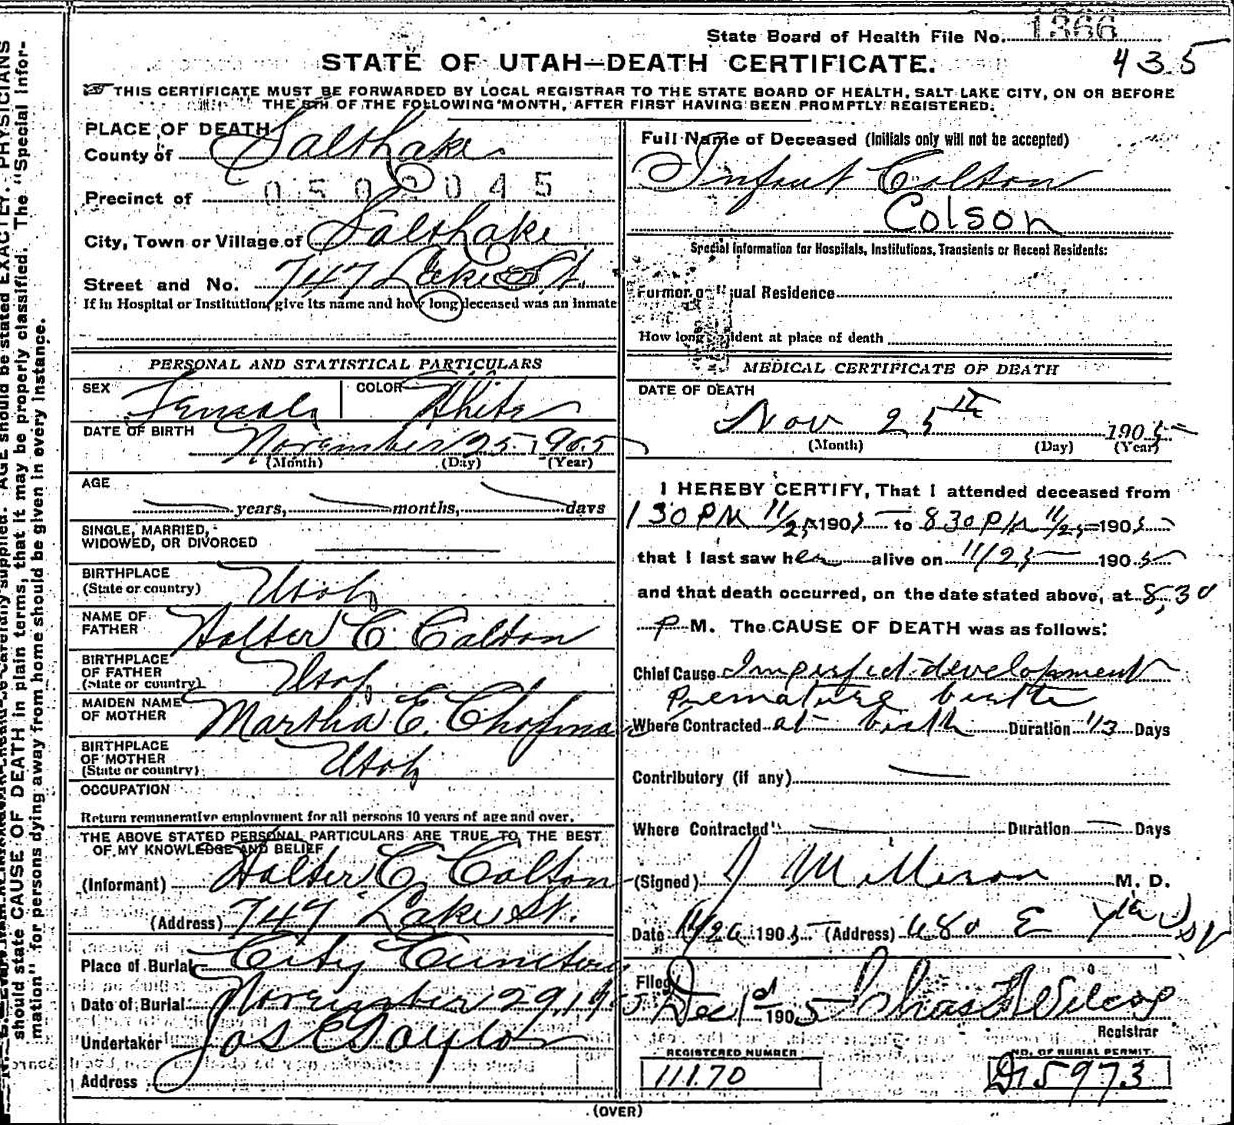 State Board of Health File No. 1366
435
STATE OF UTAH—DEATH CERTIFICATE.
THIS CERTIFICATE MUST BE FORWARDED BY LOCAL REGISTRAR TO THE STATE BOARD OF HEALTH, SALT LAKE CITY, ON OR BEFORE
THE 5TH OF THE FOLLOWING MONTH, AFTER FIRST HAVING BEEN PROMPTLY REGISTERED.
PLACE OF DEATH
County of Salt Lake
Precinct of 0502045
City, Town or Village of Salt Lake
Street and No. 747 Lake St.
If in Hospital or Institution, give its name and how long deceased was an inmate
PERSONAL AND STATISTICAL PARTICULARS
SEX Female COLOR White
DATE OF BIRTH November 25 1905
(Month) (Day) (Year)
AGE
— years, — months, — days
SINGLE, MARRIED,
WIDOWED, OR DIVORCED
BIRTHPLACE
(State or country) Utah
NAME OF
FATHER Walter C. Colton
BIRTHPLACE
OF FATHER
(State or country) Utah
MAIDEN NAME
OF MOTHER Martha E. Chapman
BIRTHPLACE
OF MOTHER
(State or country) Utah
OCCUPATION
Return remunerative employment for all persons 10 years of age and over.
THE ABOVE STATED PERSONAL PARTICULARS ARE TRUE TO THE BEST
OF MY KNOWLEDGE AND BELIEF
(Informant) Walter C. Colton
(Address) 747 Lake St.
Place of Burial City Cemetery
Date of Burial November 29, 19
Undertaker Jos E Taylor
Address
Full Name of Deceased (Initials only will not be accepted)
Infant Colton
Colson
Special Information for Hospitals, Institutions, Transients or Recent Residents:
Former or Usual Residence
How long resident at place of death
MEDICAL CERTIFICATE OF DEATH
DATE OF DEATH
Nov 25th 1905
(Month) (Day) (Year)
I HEREBY CERTIFY, That I attended deceased from
1 30 PM 11/25 1905 to 8 30 PM 11/25 1905
that I last saw her alive on 11/25 1905
and that death occurred, on the date stated above, at 8,30
P M. The CAUSE OF DEATH was as follows:
Chief Cause Imperfect development
Premature birth
Where Contracted at birth Duration 1/3 Days
Contributory (if any) —
Where Contracted — Duration — Days
(Signed) J M M. D.
Date 11/26 1905 (Address) 680 E
Filed Dec 1st 1905 Chas Wilcox
Registrar
REGISTERED NUMBER
11170
NO. OF BURIAL PERMIT
D15973
(OVER)
AGE should be stated EXACTLY. PHYSICIANS
should state CAUSE OF DEATH in plain terms, that it may be properly classified. The "Special Infor-
mation" for persons dying away from home should be given in every instance.